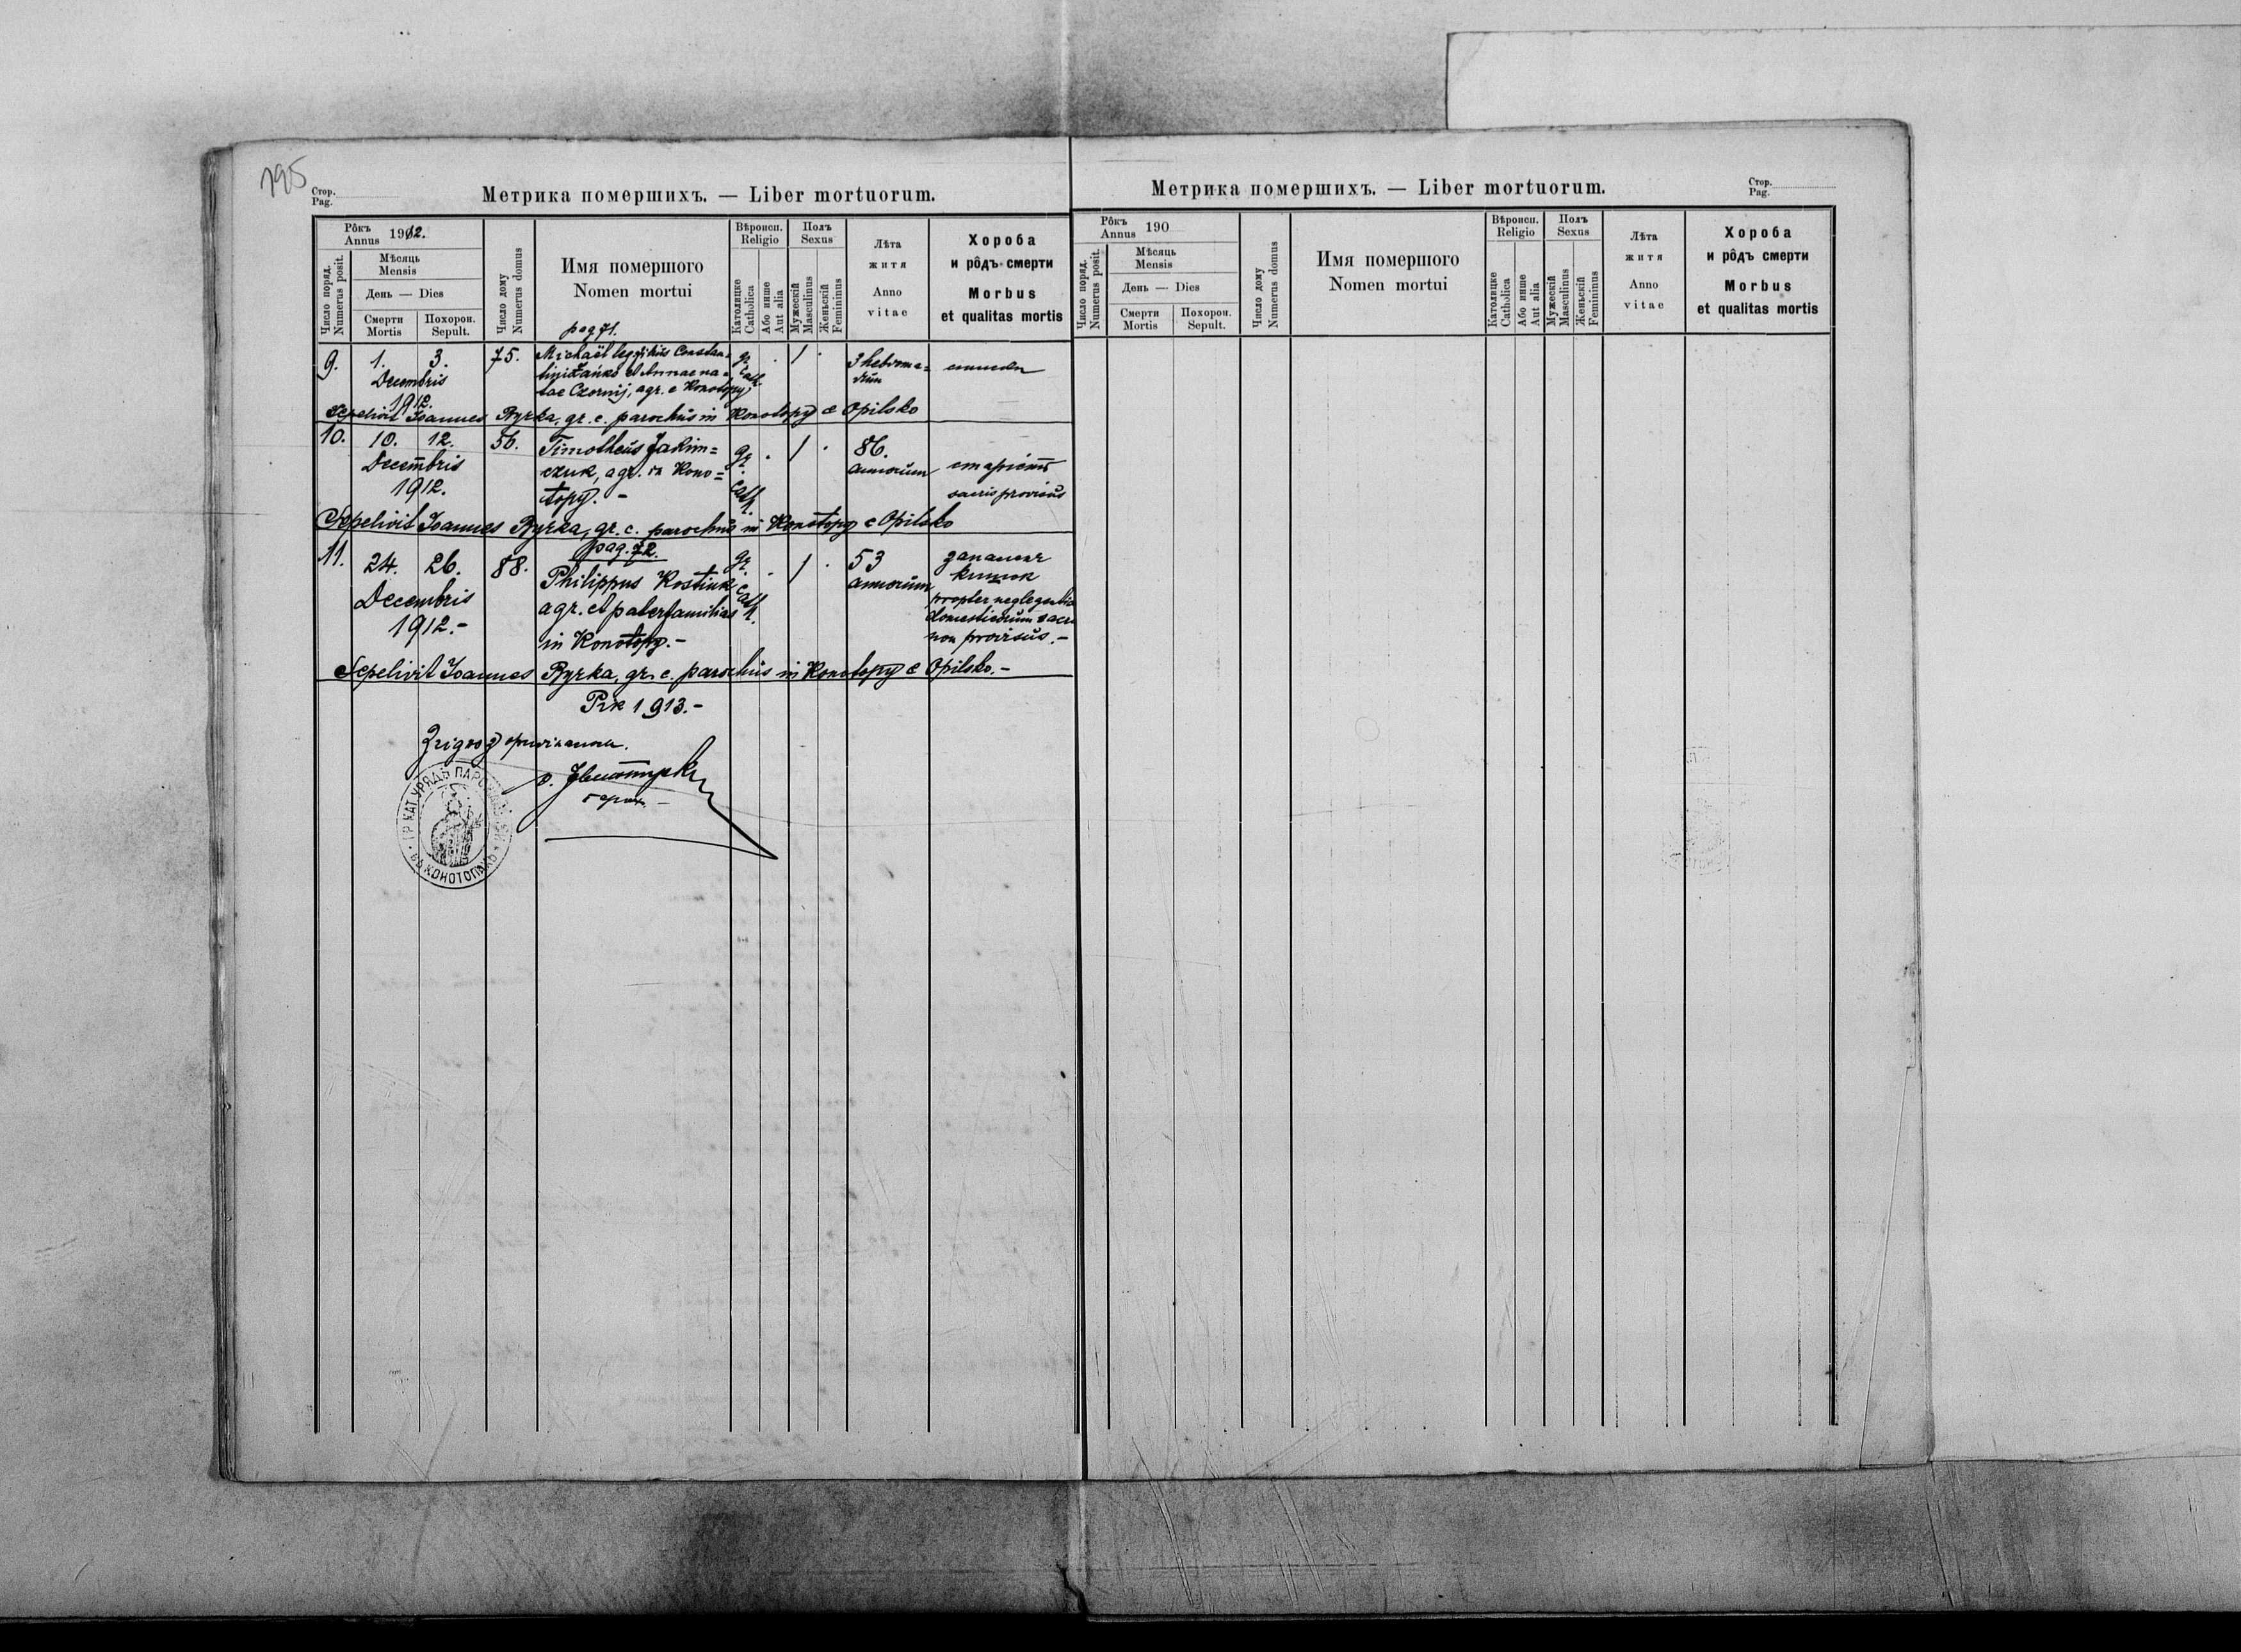 195
Стор.
Pag.
Метрика помершихъ. — Liber mortuorum.
Рôкъ
Annus 1912.
Мѣсяць
Mensis
День — Dies
Число поряд.
Numerus posit.
Смерти
Mortis
Похорон.
Sepult.
Число дому
Numerus domus
Имя помершого
Nomen mortui
Вѣроисп.
Religio
Католицке
Catholica
Або инше
Aut alia
Полъ
Sexus
Мужескій
Masculinus
Женьскій
Femininus
Лѣта
житя
Anno
vitae
Хороба
и рôдъ смерти
Morbus
et qualitas mortis
pag 71.
9. 1. 3. 75. Michaël leg. filius Constan=
Decembris
1912.
et Annae na=
tae Czornij, agr. e Konotopy
gr. cath. 1 3 hebdoma=
dum
Sepelivit Joannes Byrka, gr. c. parochus in Konotopy e Opilsko
10. 10. 12. 56. Timotheus Jakim=
czuk, agr. in Kono=
topy. -
Decembris
1912.
gr. cath. 1 86.
annorum
sacris provisus
Sepelivit Joannes Byrka, gr. c. parochus in Konotopy e Opilsko
pag. 72.
11. 24. 26. 88. Philippus Kostiuk
agr. et paterfamilias
in Konotopy. -
Decembris
1912.-
gr. cath. 1 53
annorum
запаленє
кишок
propter neglegentia
domesticorum sacri
non provisus.-
Sepelivit Joannes Byrka, gr. c. parochus in Konotopy e Opilsko.-
Рік 1913.-
ГР. КАТ. УРЯДЪ
КОНОТОПАХЪ
Метрика помершихъ. — Liber mortuorum.
Стор.
Pag.
Рôкъ
Annus 190
Мѣсяць
Mensis
День — Dies
Число поряд.
Numerus posit.
Смерти
Mortis
Похорон.
Sepult.
Число дому
Numerus domus
Имя помершого
Nomen mortui
Вѣроисп.
Religio
Католицке
Catholica
Або инше
Aut alia
Полъ
Sexus
Мужескій
Masculinus
Женьскій
Femininus
Лѣта
житя
Anno
vitae
Хороба
и рôдъ смерти
Morbus
et qualitas mortis